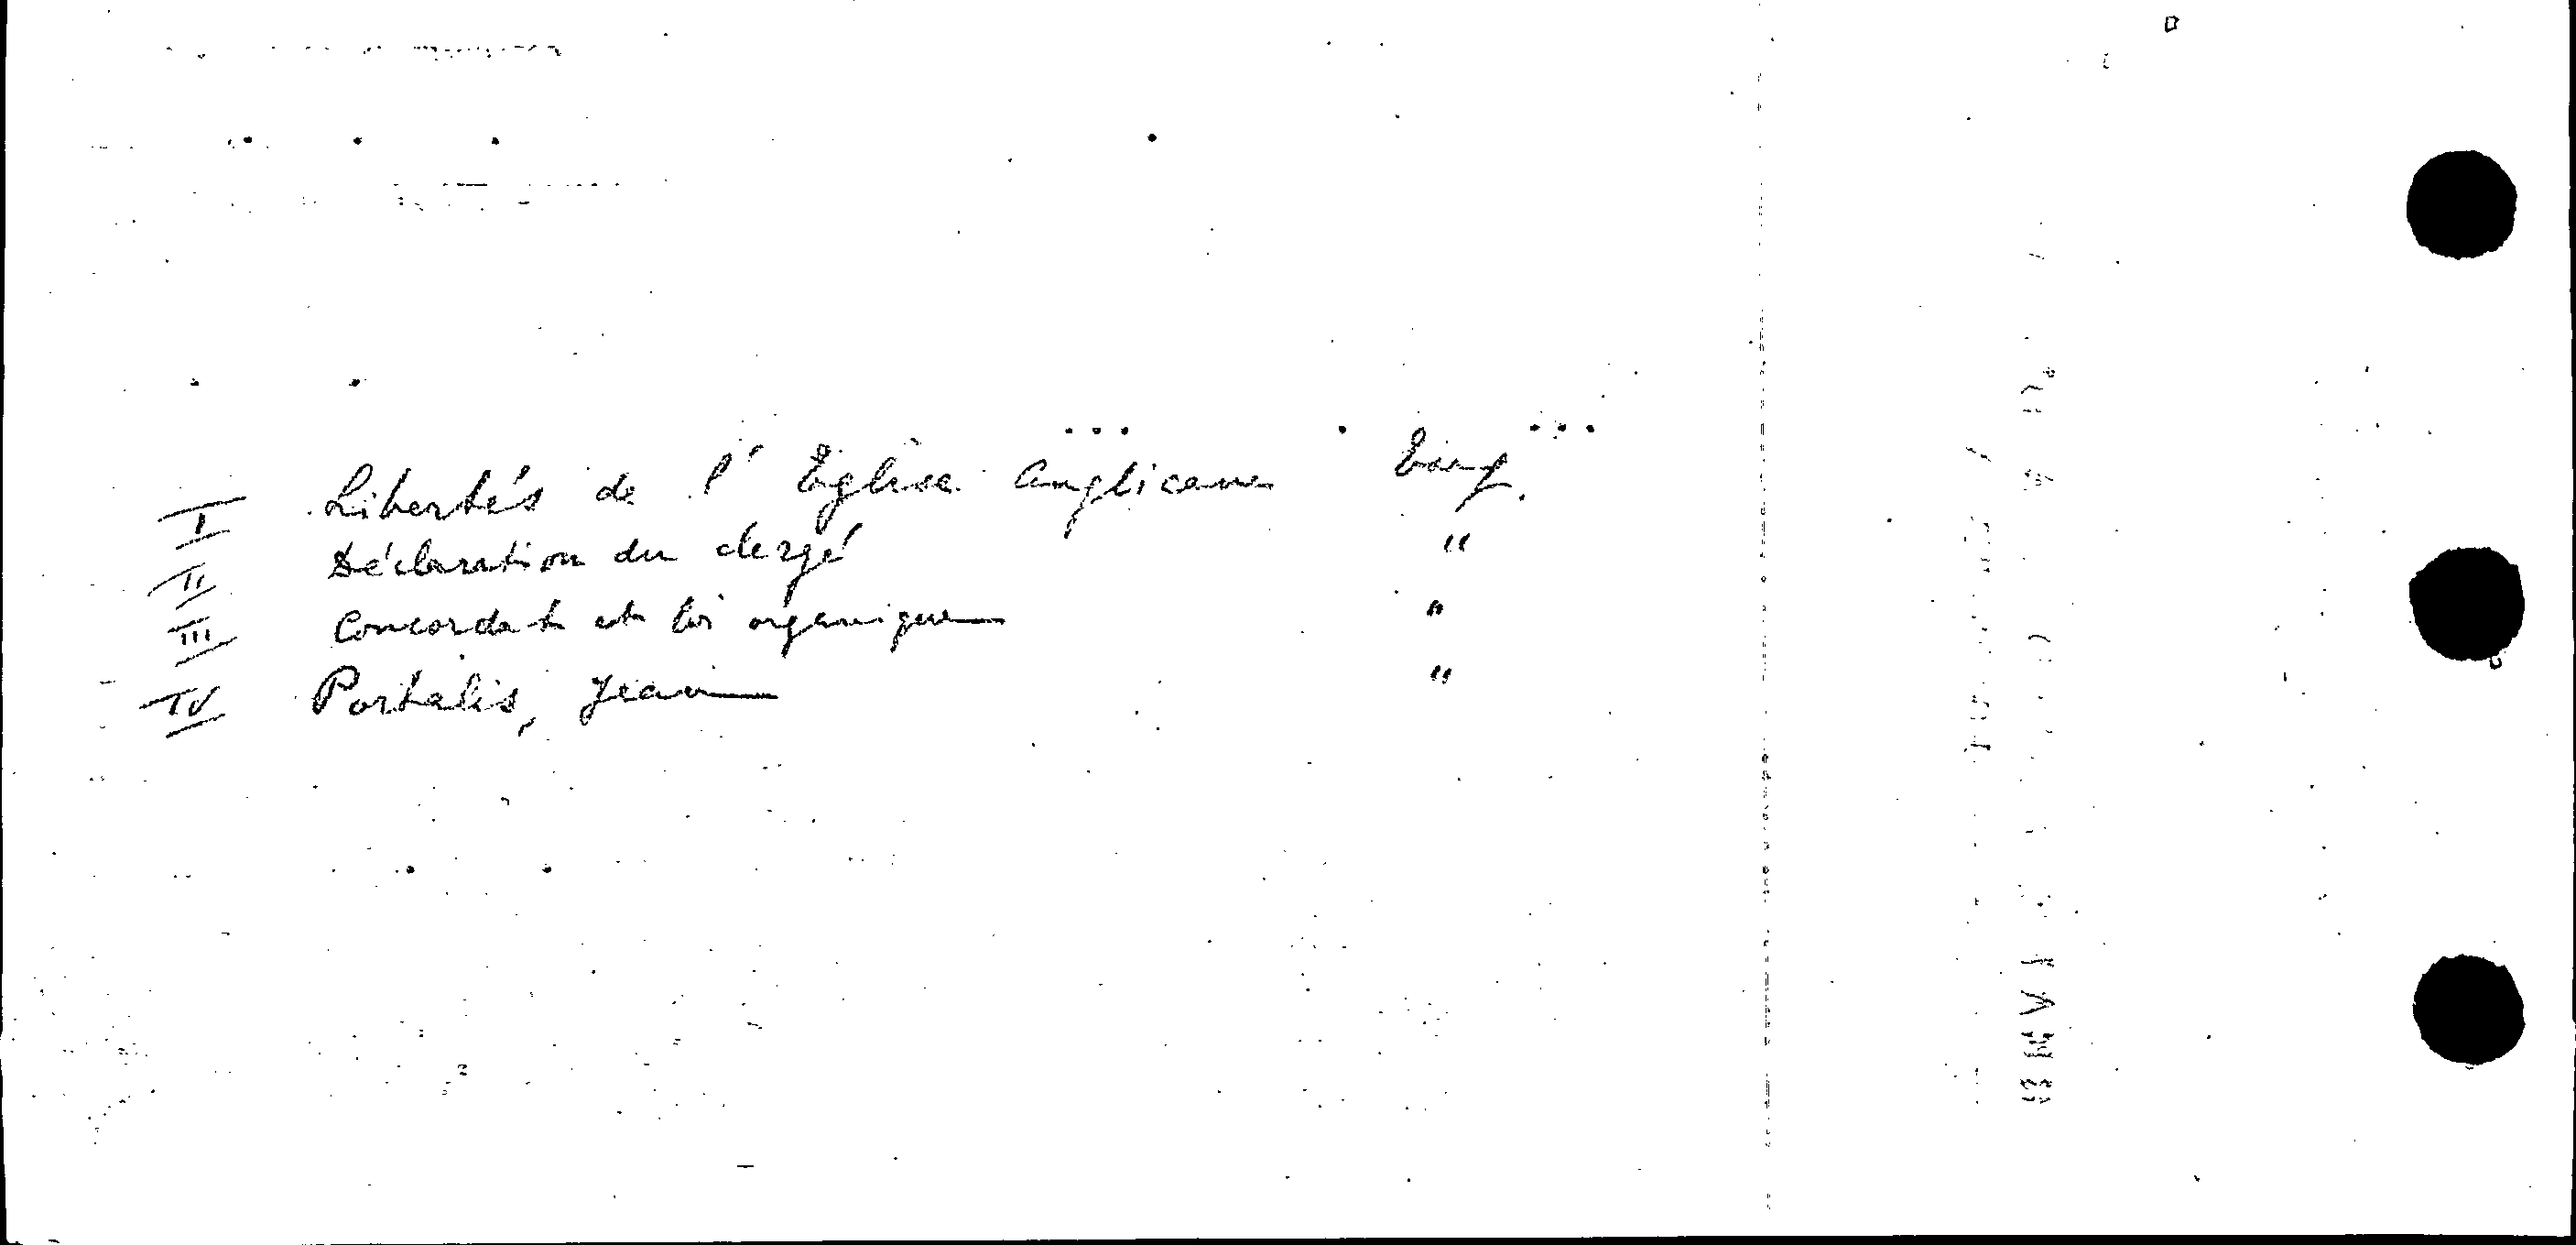 I Libertés de l'Église Anglicane
II Déclaration du clergé "
III Concordat et loi organique "
IV Portalis, Jean "